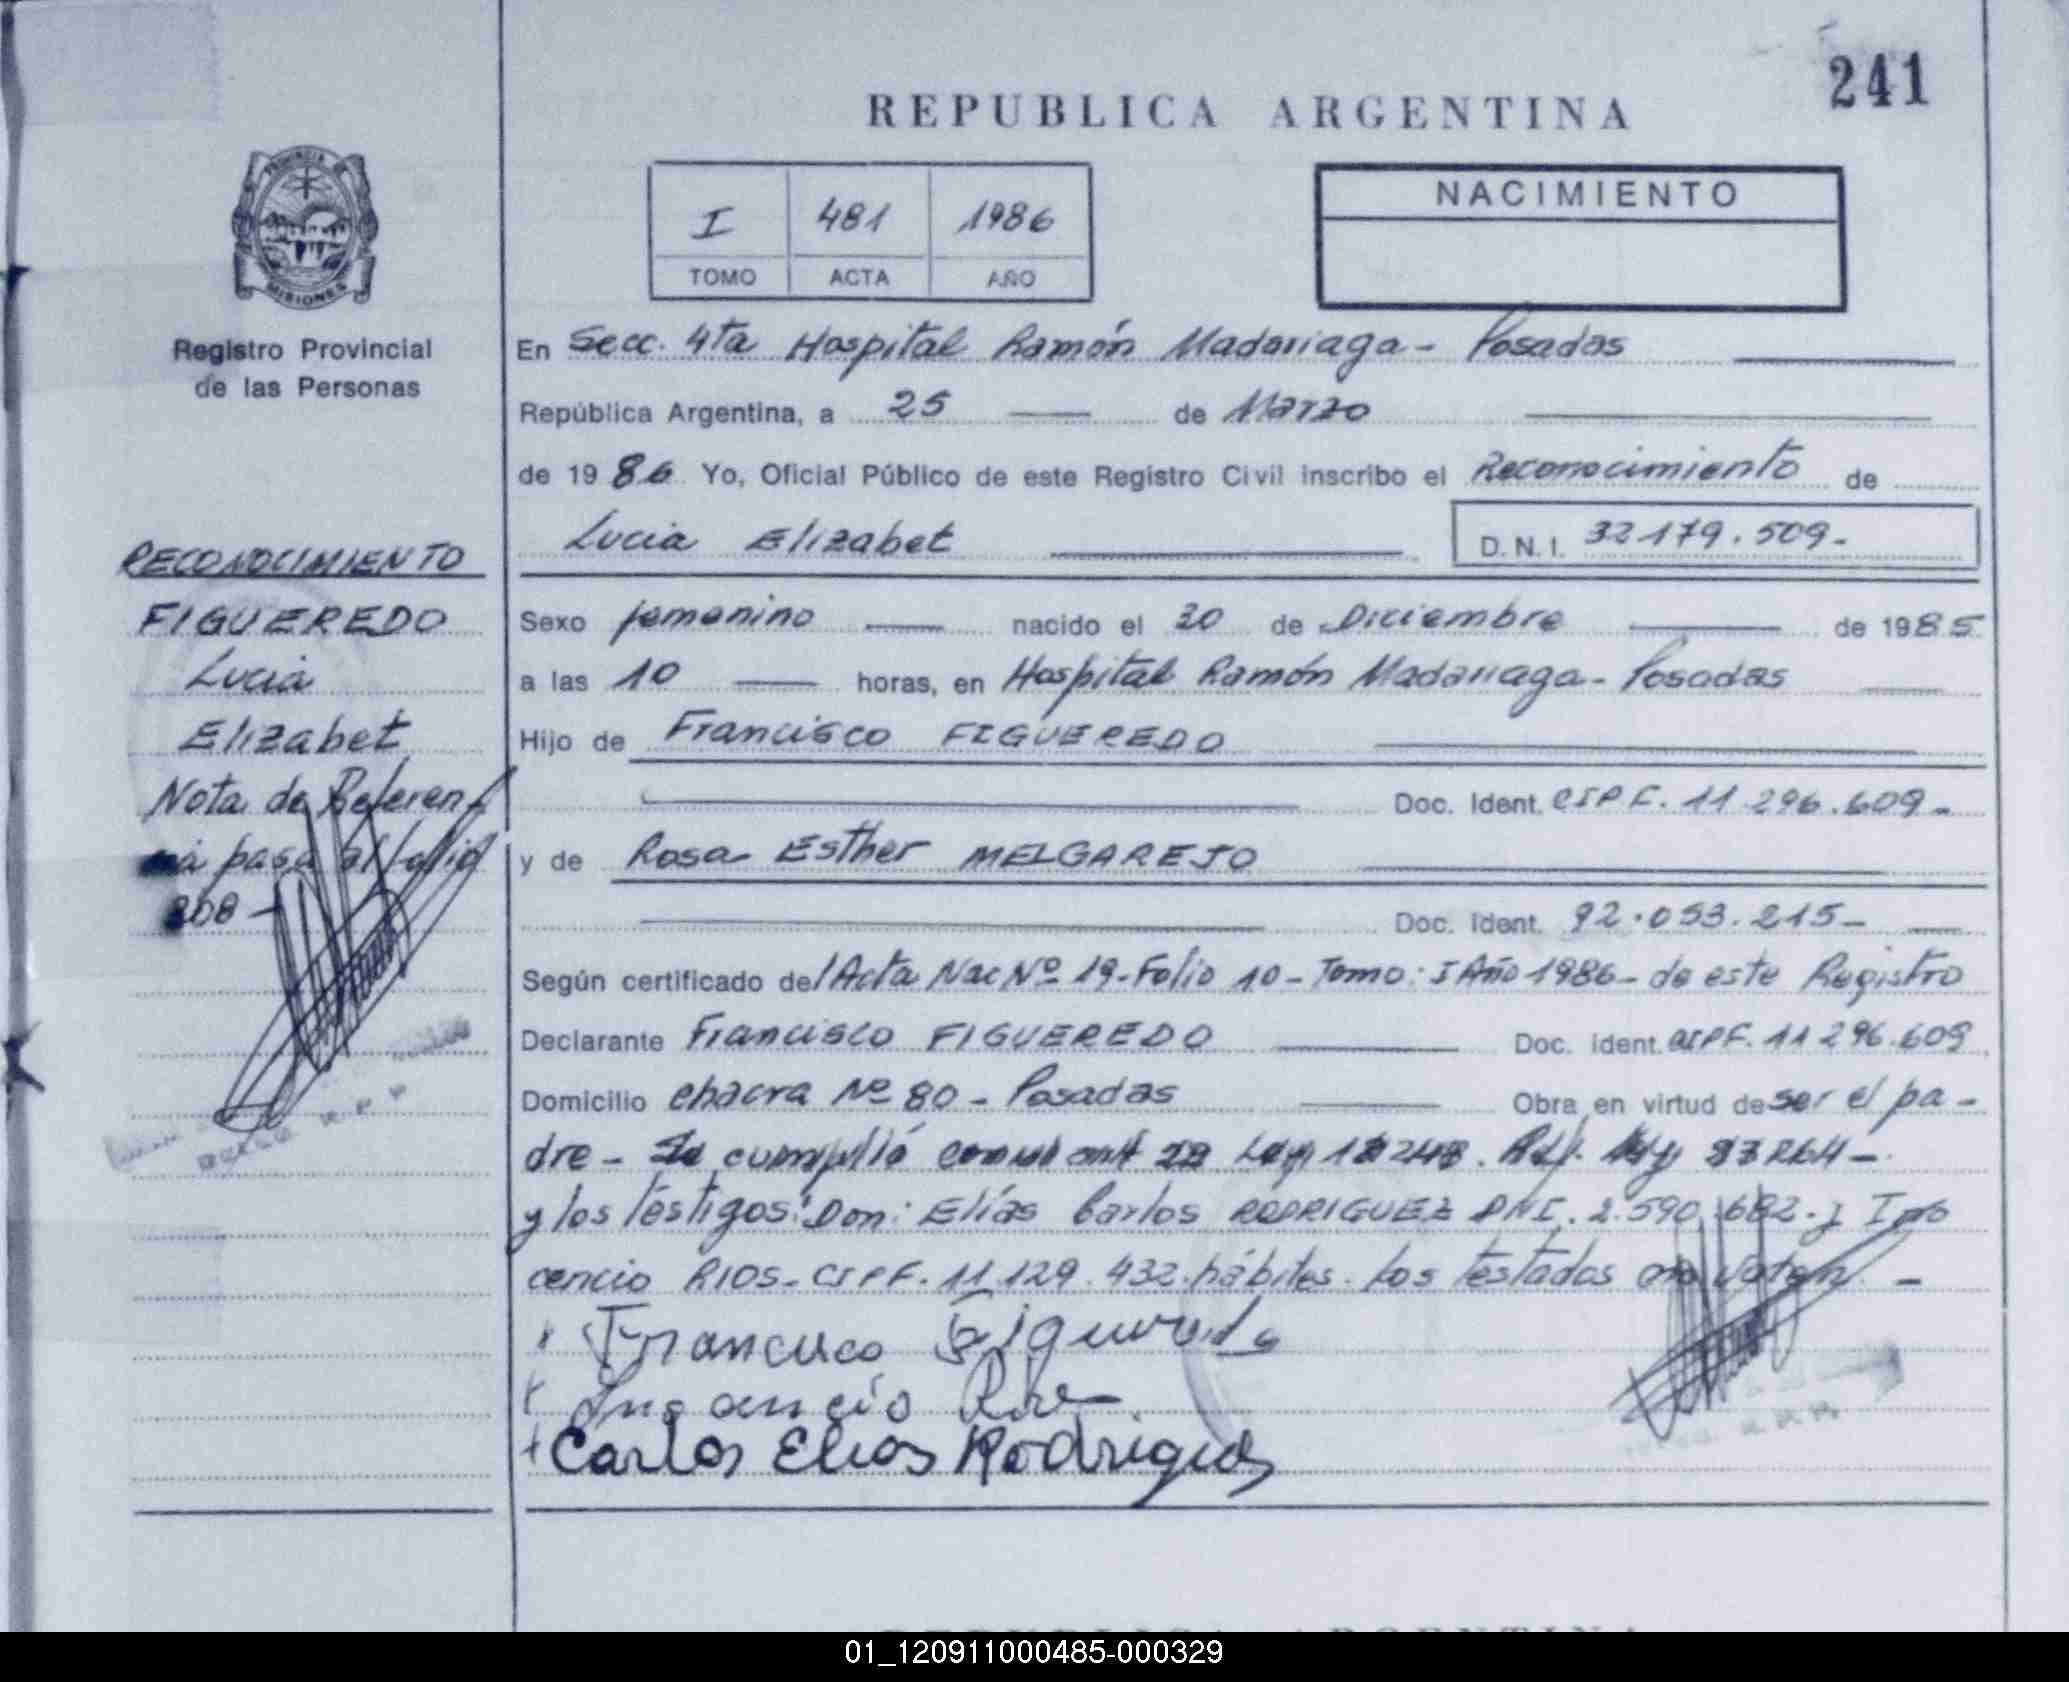 241
REPUBLICA ARGENTINA
PROVINCIA DE
MISIONES
Registro Provincial
de las Personas
I 481 1986
TOMO ACTA AÑO
NACIMIENTO
En Secc. 4ta Hospital Ramón Madariaga - Posadas
República Argentina, a 25 de Marzo
de 1986 Yo, Oficial Público de este Registro Civil inscribo el Reconocimiento de
Lucia Elizabet D.N.I. 32.179.509.-
RECONOCIMIENTO
FIGUEREDO
Lucia
Elizabet
Nota de Referen
cia pasa al folio
208 -
Sexo femenino nacido el 30 de Diciembre de 1985
a las 10 horas, en Hospital Ramón Madariaga - Posadas
Hijo de Francisco FIGUEREDO
Doc. Ident. CIPF. 11.296.609 -
y de Rosa Esther MELGAREJO
Doc. Ident. 92.053.215 -
Según certificado del Acta Nac Nº 19 - Folio 10 - Tomo: I Año 1986 - de este Registro
Declarante Francisco FIGUEREDO Doc. ident. CIPF. 11 296.609
Domicilio Chacra Nº 80 - Posadas Obra en virtud de ser el pa -
dre - Se cumplió con el art Ley
y los testigos: Don: Elías Carlos RODRIGUEZ DNI. 2.590.682. y Ino
cencio RIOS - CIPF. 11.129.432. hábiles. Los testados no valen. -
Francisco Figueredo
Inocencio Rios
Carlos Elias Rodriguez
R.P.P.
REPUBLICA ARGENTINA
01_120911000485-000329